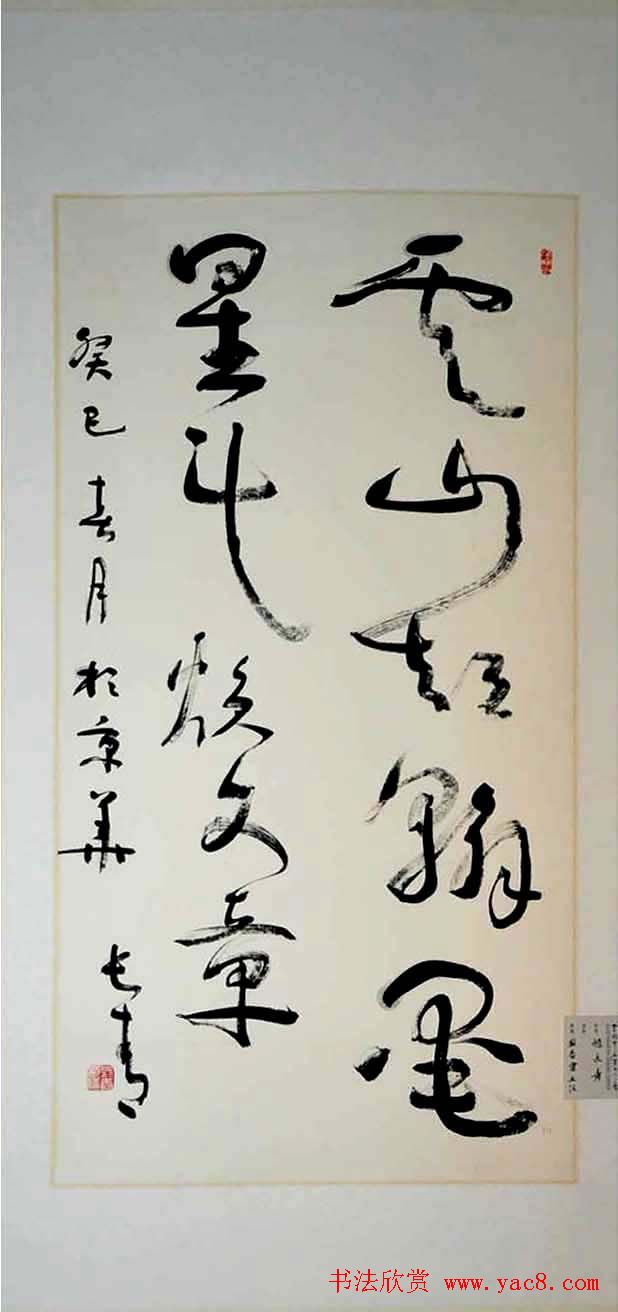 云山起翰墨
星斗焕文章
癸巳春月於京華
长青
书法欣赏 www.yac8.com